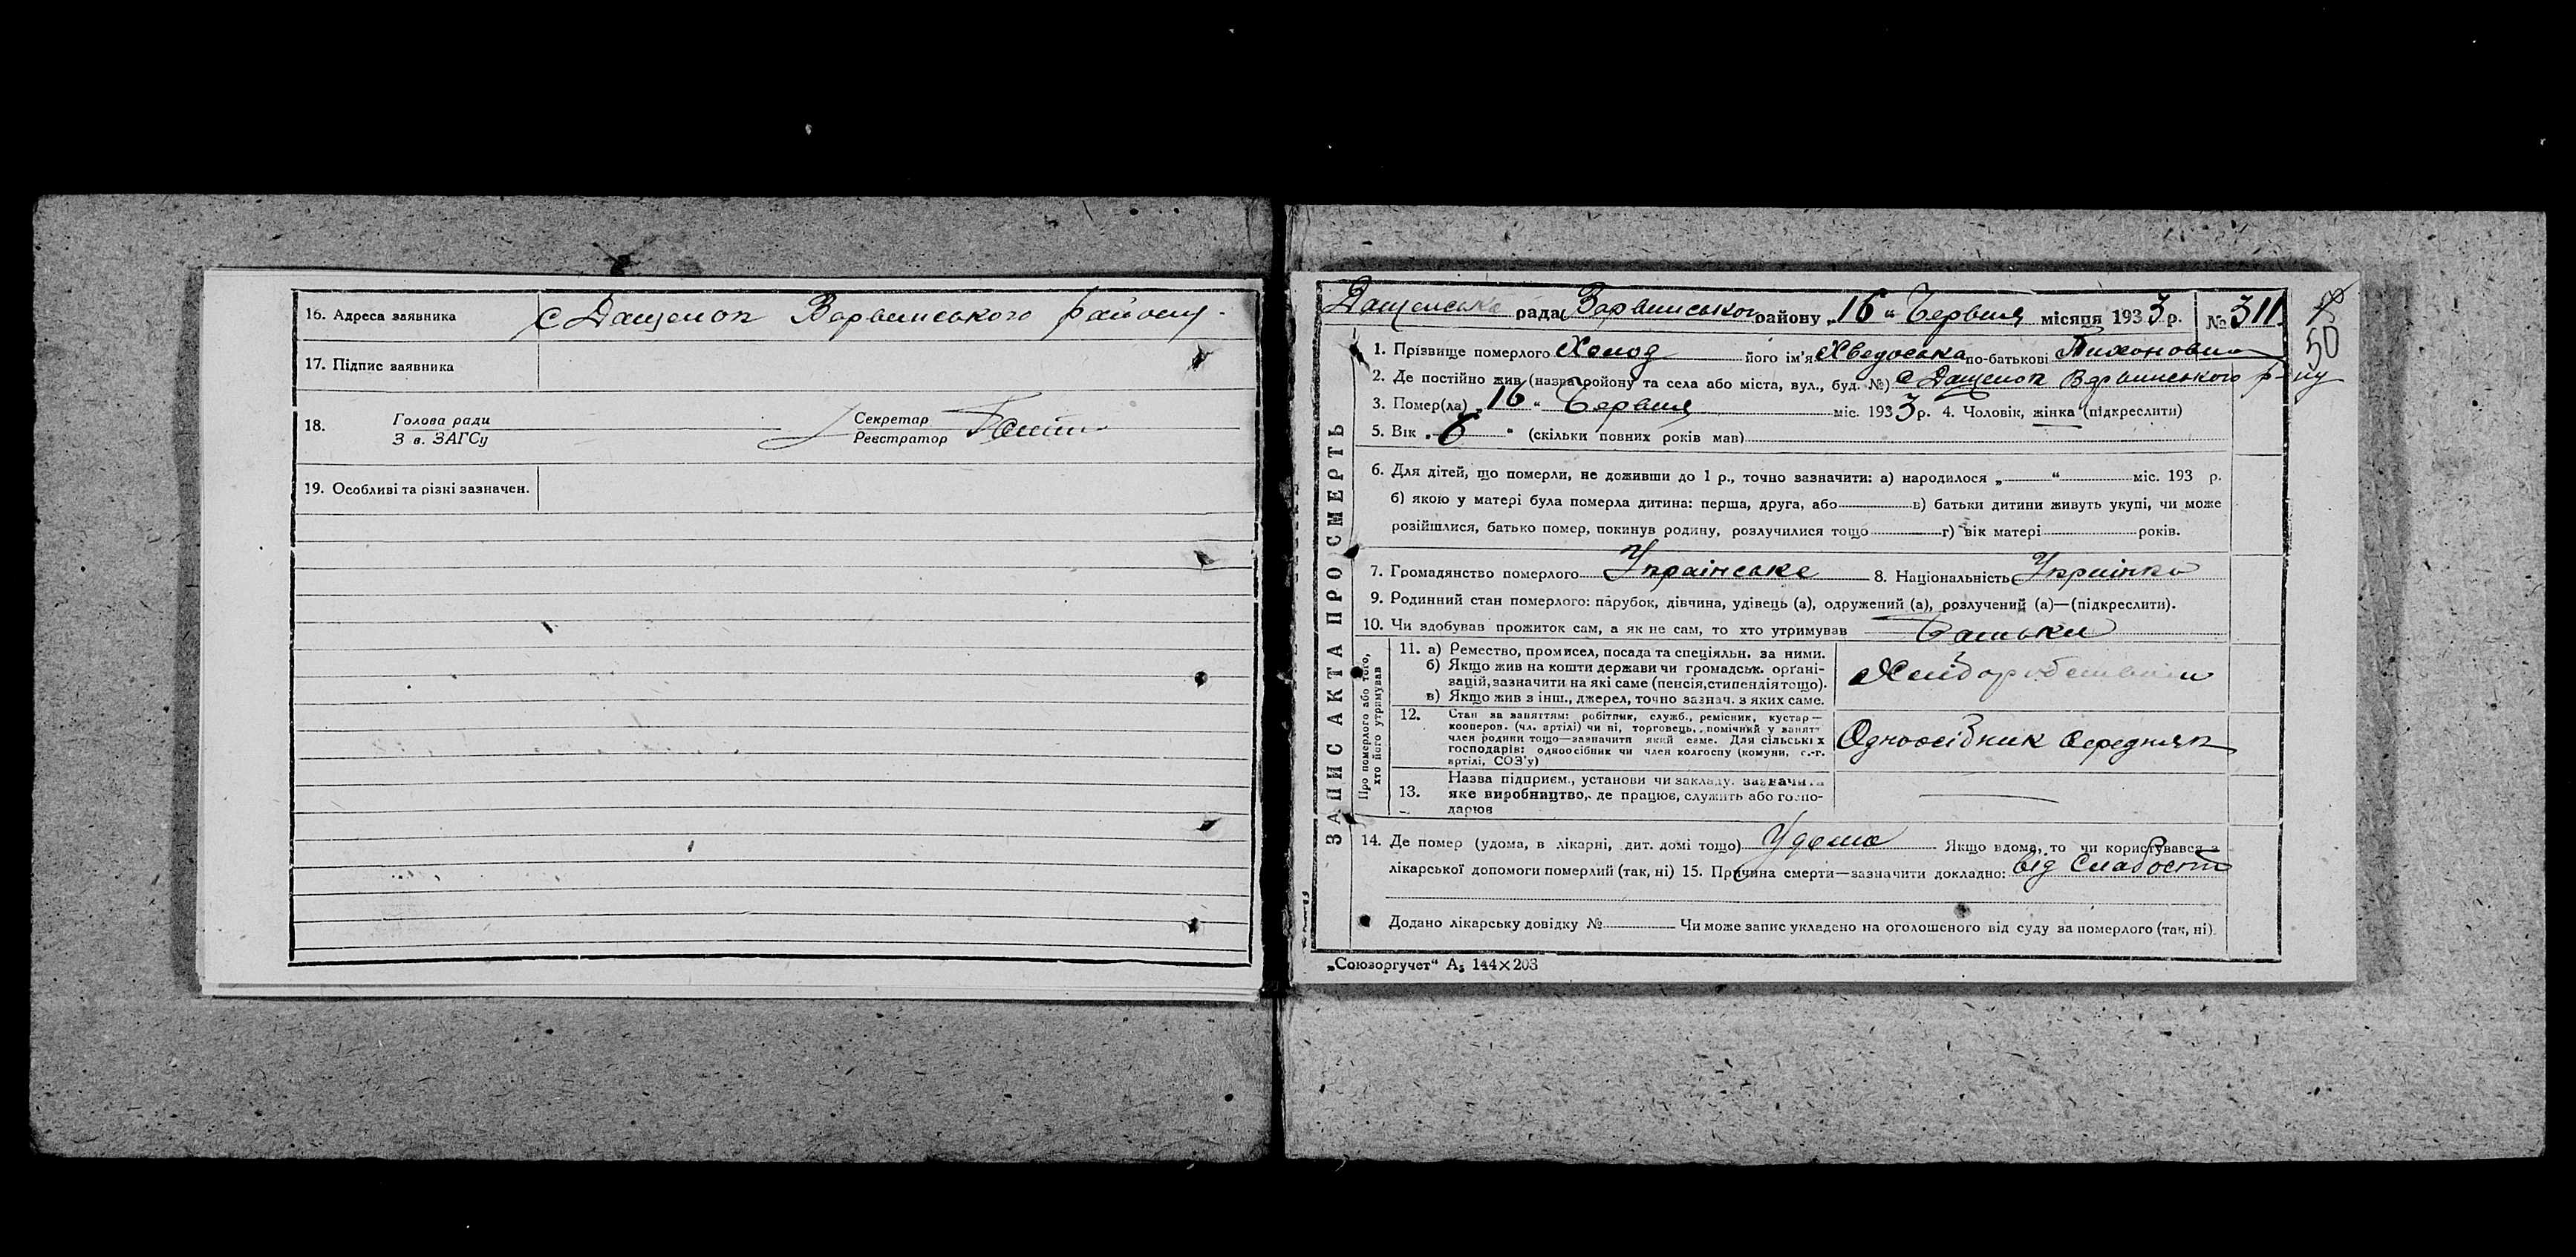 16. Адреса заявника с Дащенок Варвинського району.
17. Підпис заявника
18. Голова ради
З в. ЗАГСу
Секретар
Реєстратор
19. Особливі та різні зазначен.
Дащенська рада Варвинського району „16“ Червня місяця 1933 р. № 311
50
ЗАПИС АКТА ПРО СМЕРТЬ
1. Прізвище померлого Холод його ім'я Хведоська по-батькові Тихоновна
2. Де постійно жив (назва району та села або міста, вул., буд. №) с Дащенок Варвинського р-ну
3. Помер(ла) „16“ Червня міс. 1933 р. 4. Чоловік, жінка (підкреслити)
5. Вік „6“ (скільки повних років мав)
6. Для дітей, що померли, не доживши до 1 р., точно зазначити: а) народилося „ “ міс. 193 р.
б) якою у матері була померла дитина: перша, друга, або в) батьки дитини живуть укупі, чи може
розійшлися, батько помер, покинув родину, розлучилися тощо г) вік матері років.
7. Громадянство померлого Українське 8. Національність Українка
9. Родинний стан померлого: парубок, дівчина, удівець (а), одружений (а), розлучений (а)—(підкреслити).
10. Чи здобував прожиток сам, а як не сам, то хто утримував Батьки
Про померлого або того,
хто його утримував
11. а) Ремество, промисел, посада та спеціяльн. за ними.
б) Якщо жив на кошти держави чи громадськ. орґані-
зацій, зазначити на які саме (пенсія, стипендія тощо).
в) Якщо жив з інш., джерел, точно зазнач. з яких саме.
12. Стан за заняттям: робітник, служб., ремісник, кустар—
кооперов. (чл. артілі) чи ні, торговець, помічний у занят-
член родини тощо—зазначити який саме. Для сільських
господарів: одноосібник чи член колгоспу (комуни, с.-г.
артілі, СОЗ'у)
Одноосібник середняк
13. Назва підприєм., установи чи закладу, зазначити
яке виробництво, де працює, служить або госпо-
дарює
14. Де помер (удома, в лікарні, дит. домі тощо) Удома Якщо вдома, то чи користувався з
лікарської допомоги померлий (так, ні) 15. Причина смерти—зазначити докладно: від Слабости
Додано лікарську довідку № Чи може запис укладено на оголошеного від суду за померлого (так, ні).
„Союзоргучет“ А₅ 144×203